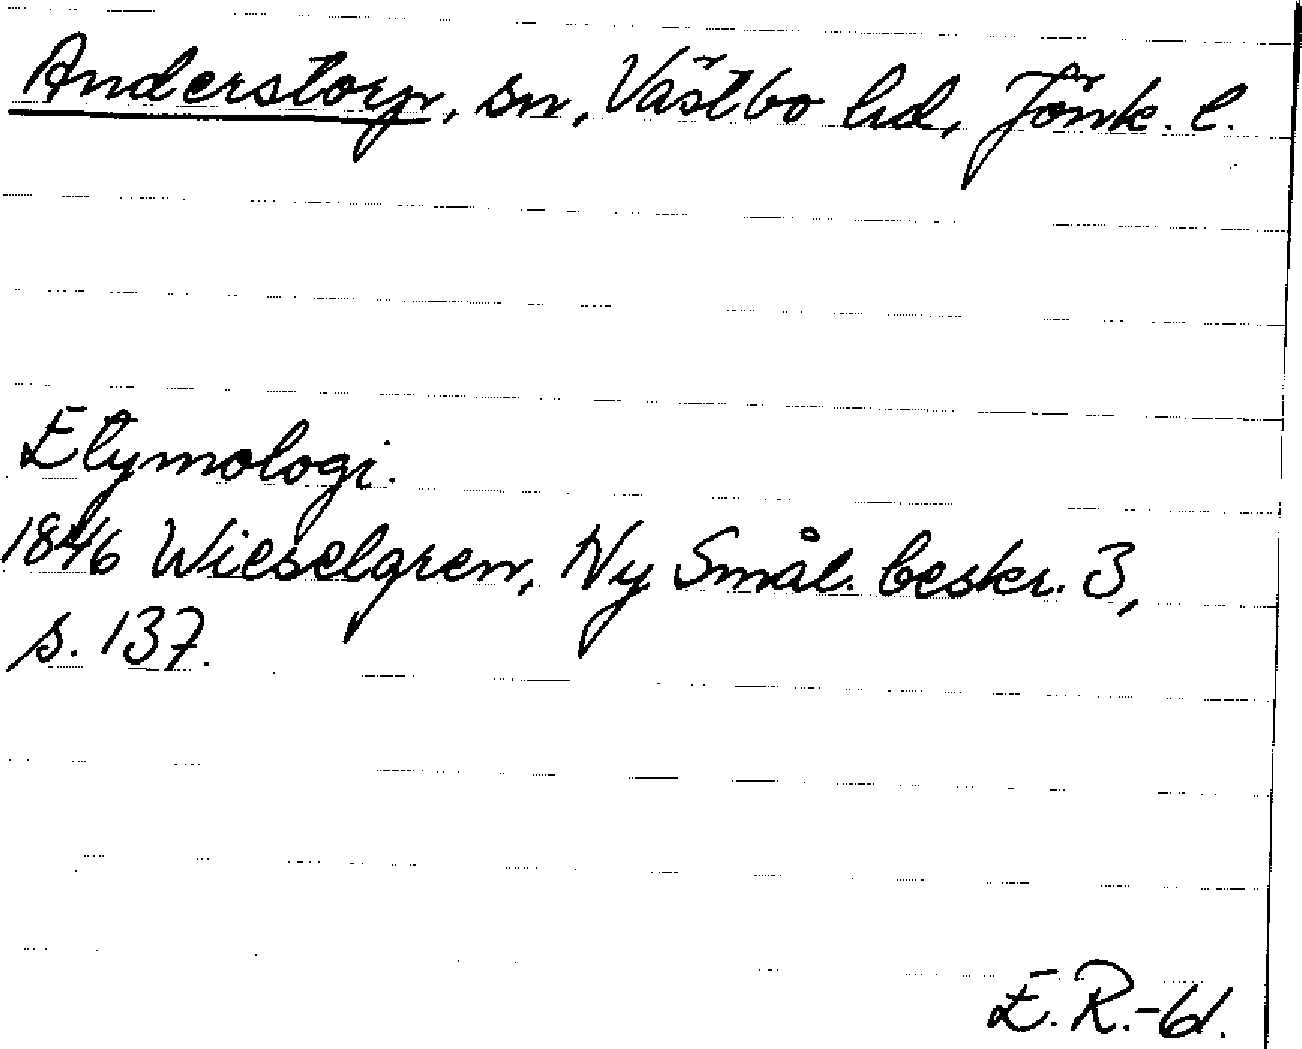 Anderstorp, sn, Västbo hd, Jönk. l.
Etymologi.
1846 Wieselgren, Ny Smål. beskr. 3,
s. 137.
E. R.-61.